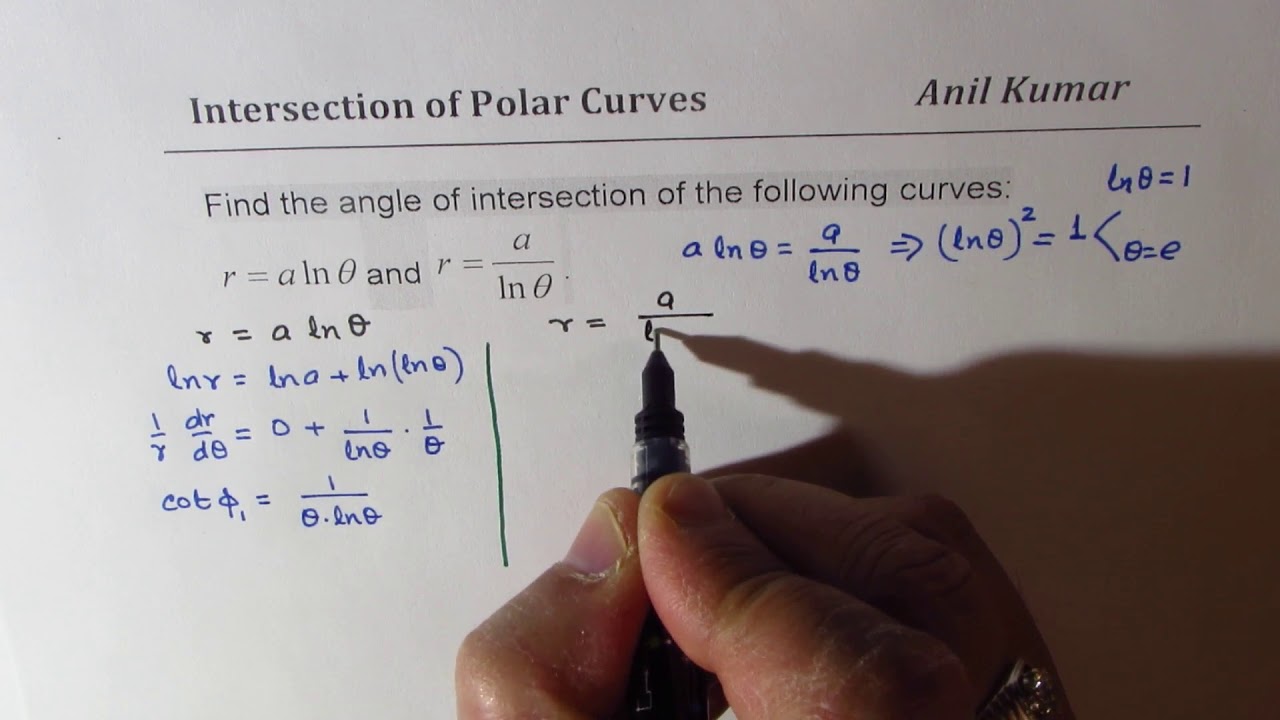 Intersection of Polar Curves Anil Kumar
Find the angle of intersection of the following curves: ln θ = 1
r = a ln θ and r = a / ln θ . a ln θ = a / ln θ ⇒ (ln θ)² = 1 < θ = e
r = a ln θ r = a / l
ln r = ln a + ln(ln θ)
1/r dr/dθ = 0 + 1/ln θ · 1/θ
cot ϕ₁ = 1 / θ · ln θ